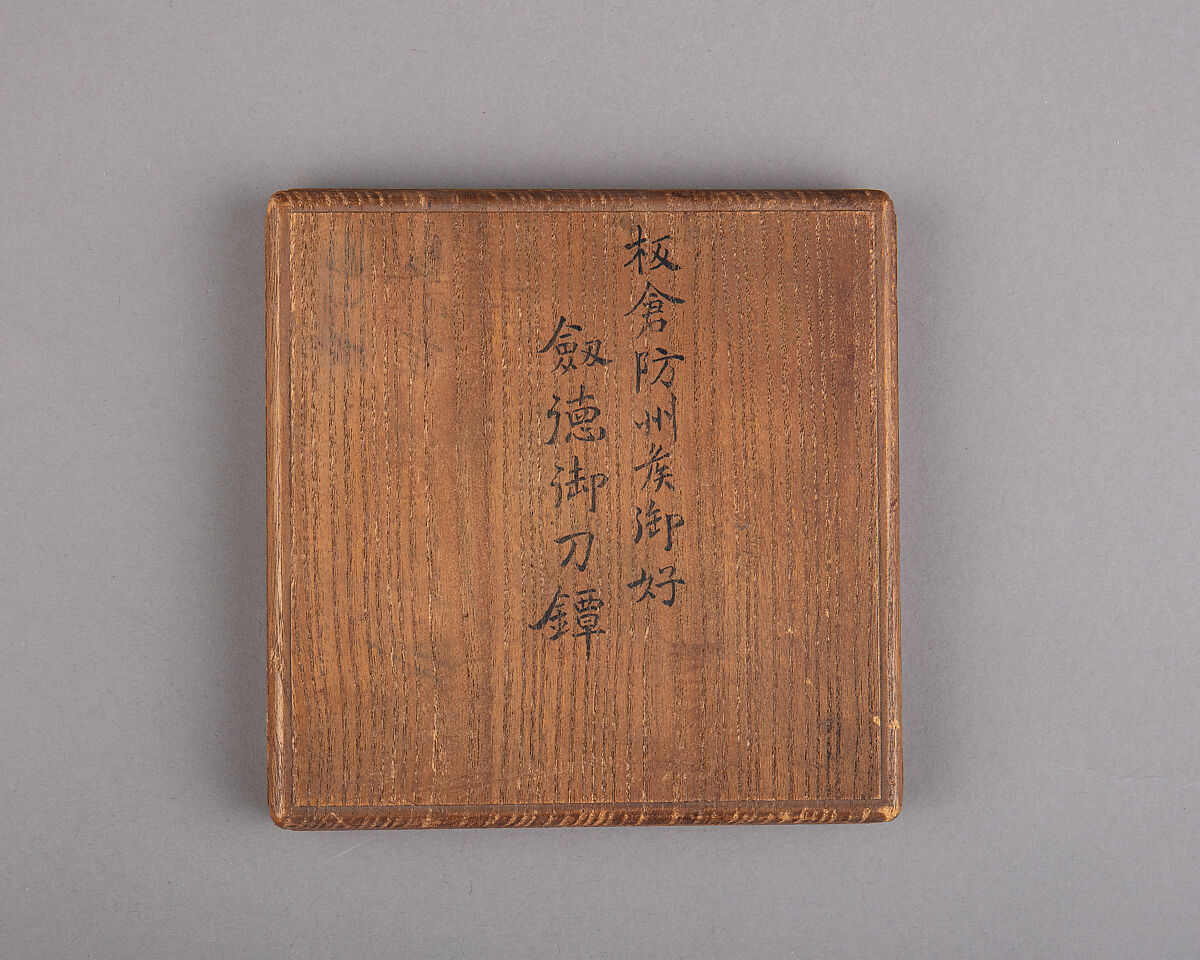 板倉防州侯御好
劔徳御刀鐔